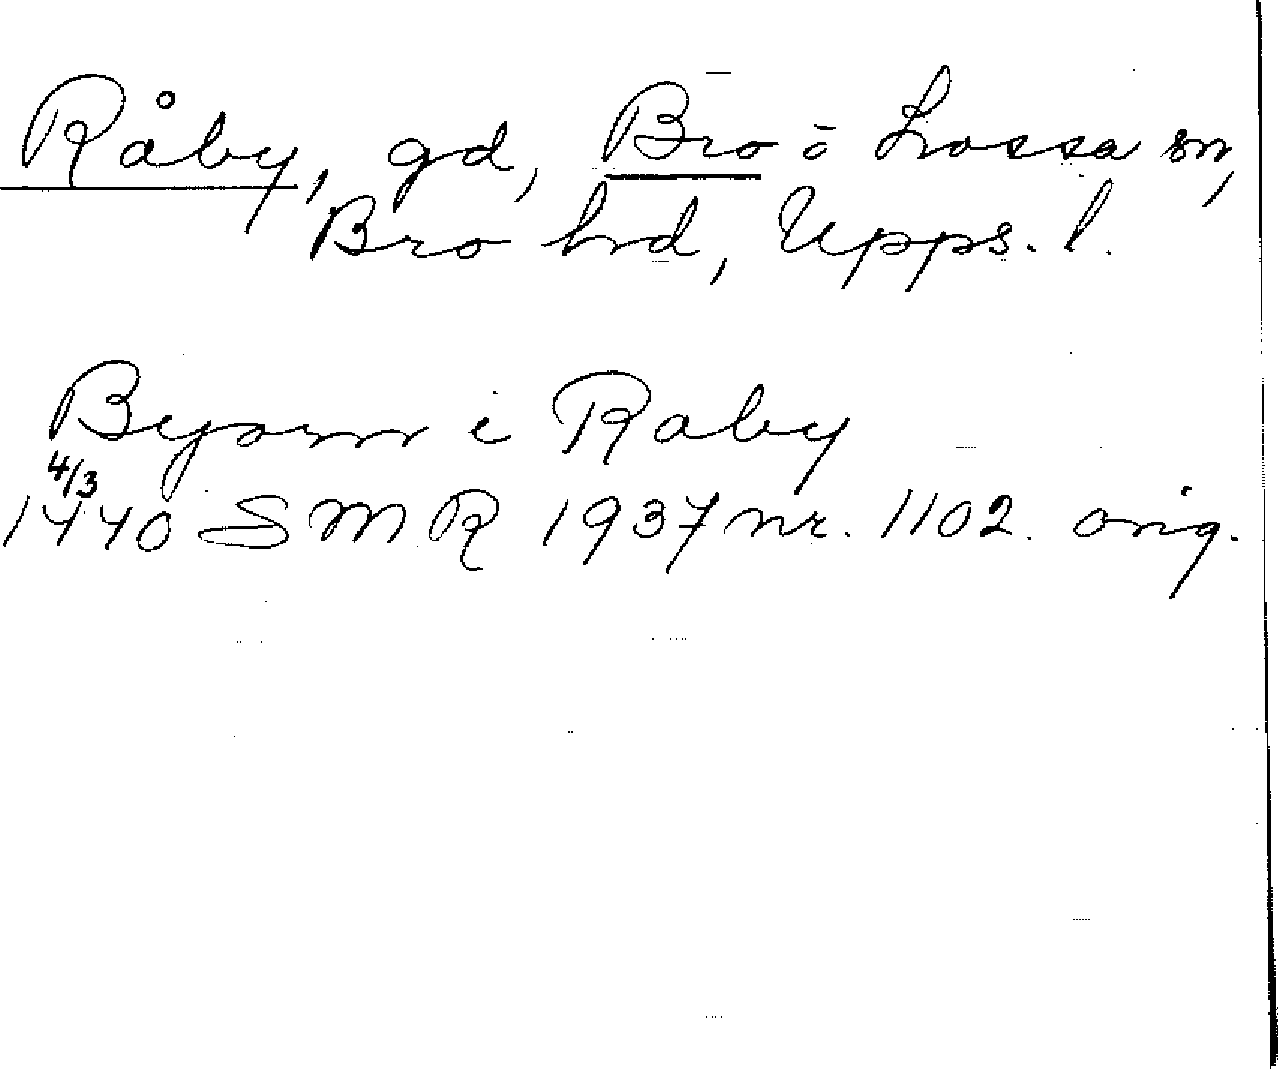 Råby, gd, Bro o Lossa sn,
Bro hd, Upps. l.
Byorn i Raby
4/3
1440 SMR 1937 nr. 1102. orig.